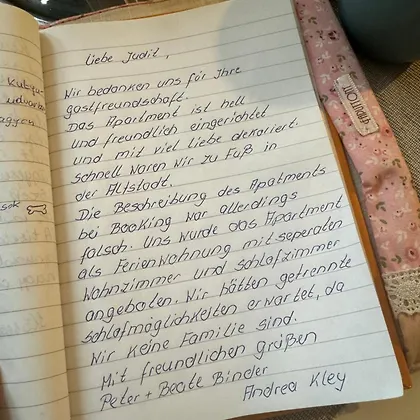 Liebe Judit,
Wir bedanken uns für Ihre
gastfreundschaft.
Das Apartment ist hell
und freundlich eingerichtet
und mit viel Liebe dekoriert.
Schnell waren wir zu Fuß in
der Altstadt.
Die Beschreibung des Apatments
bei Booking war allerdings
falsch. Uns wurde das Apartment
als Ferienwohnung mit seperaten
Wohnzimmer und Schlafzimmer
angeboten. Wir hätten getrennte
Schlafmöglichkeiten erwartet, da
Wir keine Familie sind.
Mit freundlichen grüßen
Peter + Beate Binder
Andrea Kley